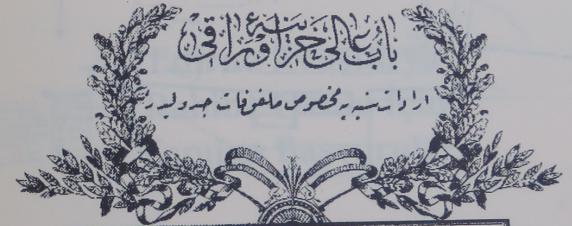 باب عالی خزینۀ اوراقی
ارادات سنیه یه مخصوص ملفوفات جدولیدر